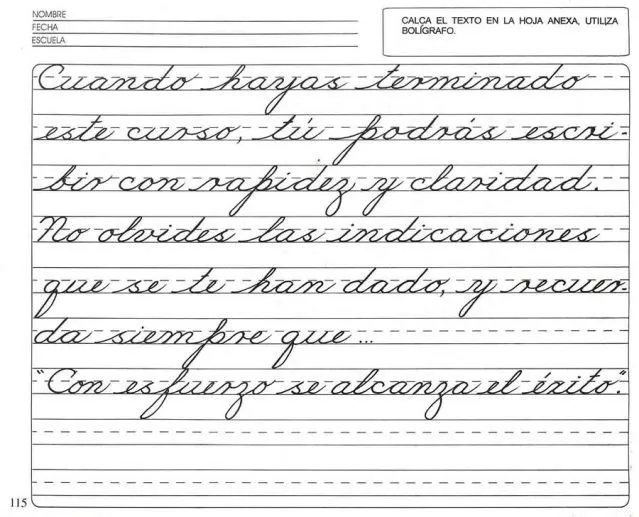 NOMBRE
FECHA
ESCUELA
CALCA EL TEXTO EN LA HOJA ANEXA, UTILIZA
BOLÍGRAFO.
Cuando hayas terminado
este curso, tú podrás escri-
bir con rapidez y claridad.
No olvides las indicaciones
que se te han dado, y recuer-
da siempre que ...
"Con esfuerzo se alcanza el éxito".
115